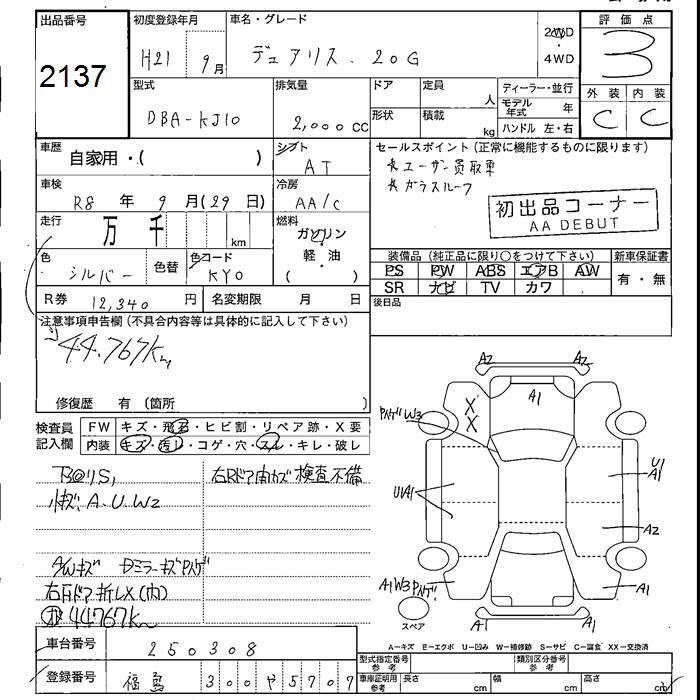 出品番号
2137
初度登録年月
H21 9月
車名・グレード
デュアリス 20G
2WD
・
4WD
評価点
3
外装 内装
C C
型式
DBA-KJ10
排気量
2,000 CC
ドア
定員
人
形状
積載
kg
ディーラー・並行
モデル年式 年
ハンドル 左・右
車歴
自家用・( )
シフト
AT
セールスポイント(正常に機能するものに限ります)
*ユーザー買取車
*ガラスルーフ
初出品コーナー
AA DEBUT
車検
R8 年 9 月(29 日)
冷房
AA/C
走行
万 千 km
燃料
ガソリン
軽・油
( )
色
シルバー
色替
色コード
KY0
装備品(純正品に限り○をつけて下さい)
PS PW ABS エアB AW
SR ナビ TV カワ
新車保証書
有・無
R券 12,340 円
名変期限 月 日
後日品
注意事項申告欄(不具合内容等は具体的に記入して下さい)
44.767km
修復歴 有(箇所 )
検査員
記入欄
FW キズ・飛石・ヒビ割・リペア跡・X要
内装 キズ・汚れ・コゲ・穴・スレ・キレ・破レ
小キズ、A.U.W2
A/Wキズ DミラーキズPハゲ
44767km
検査不備
A2
A1
X
X
PハゲW3
U1A1
U1
A1
A2
A1W3Pハゲ
A1
スペア
A1
A1
A-キズ E-エクボ U-凹み W-補修跡 S-サビ C-腐食 XX-交換済
車台番号
250308
登録番号
福島 300や5707
型式指定番号
参考
類別区分番号
参考
車庫証明用
参考
長さ cm
幅 cm
高さ cm